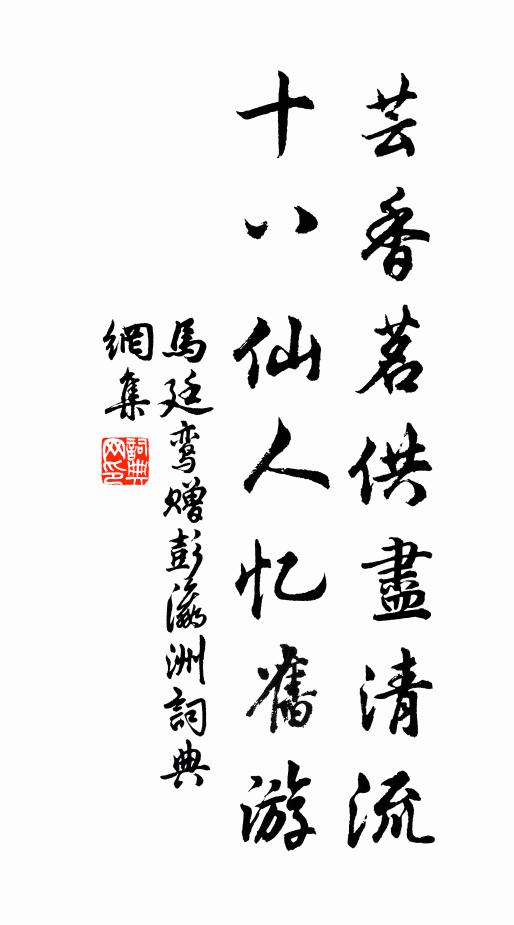 芸香茗供盡清流
十八仙人忆舊游
馬廷鸾赠彭瀛洲詞典
網集
詞典
网印